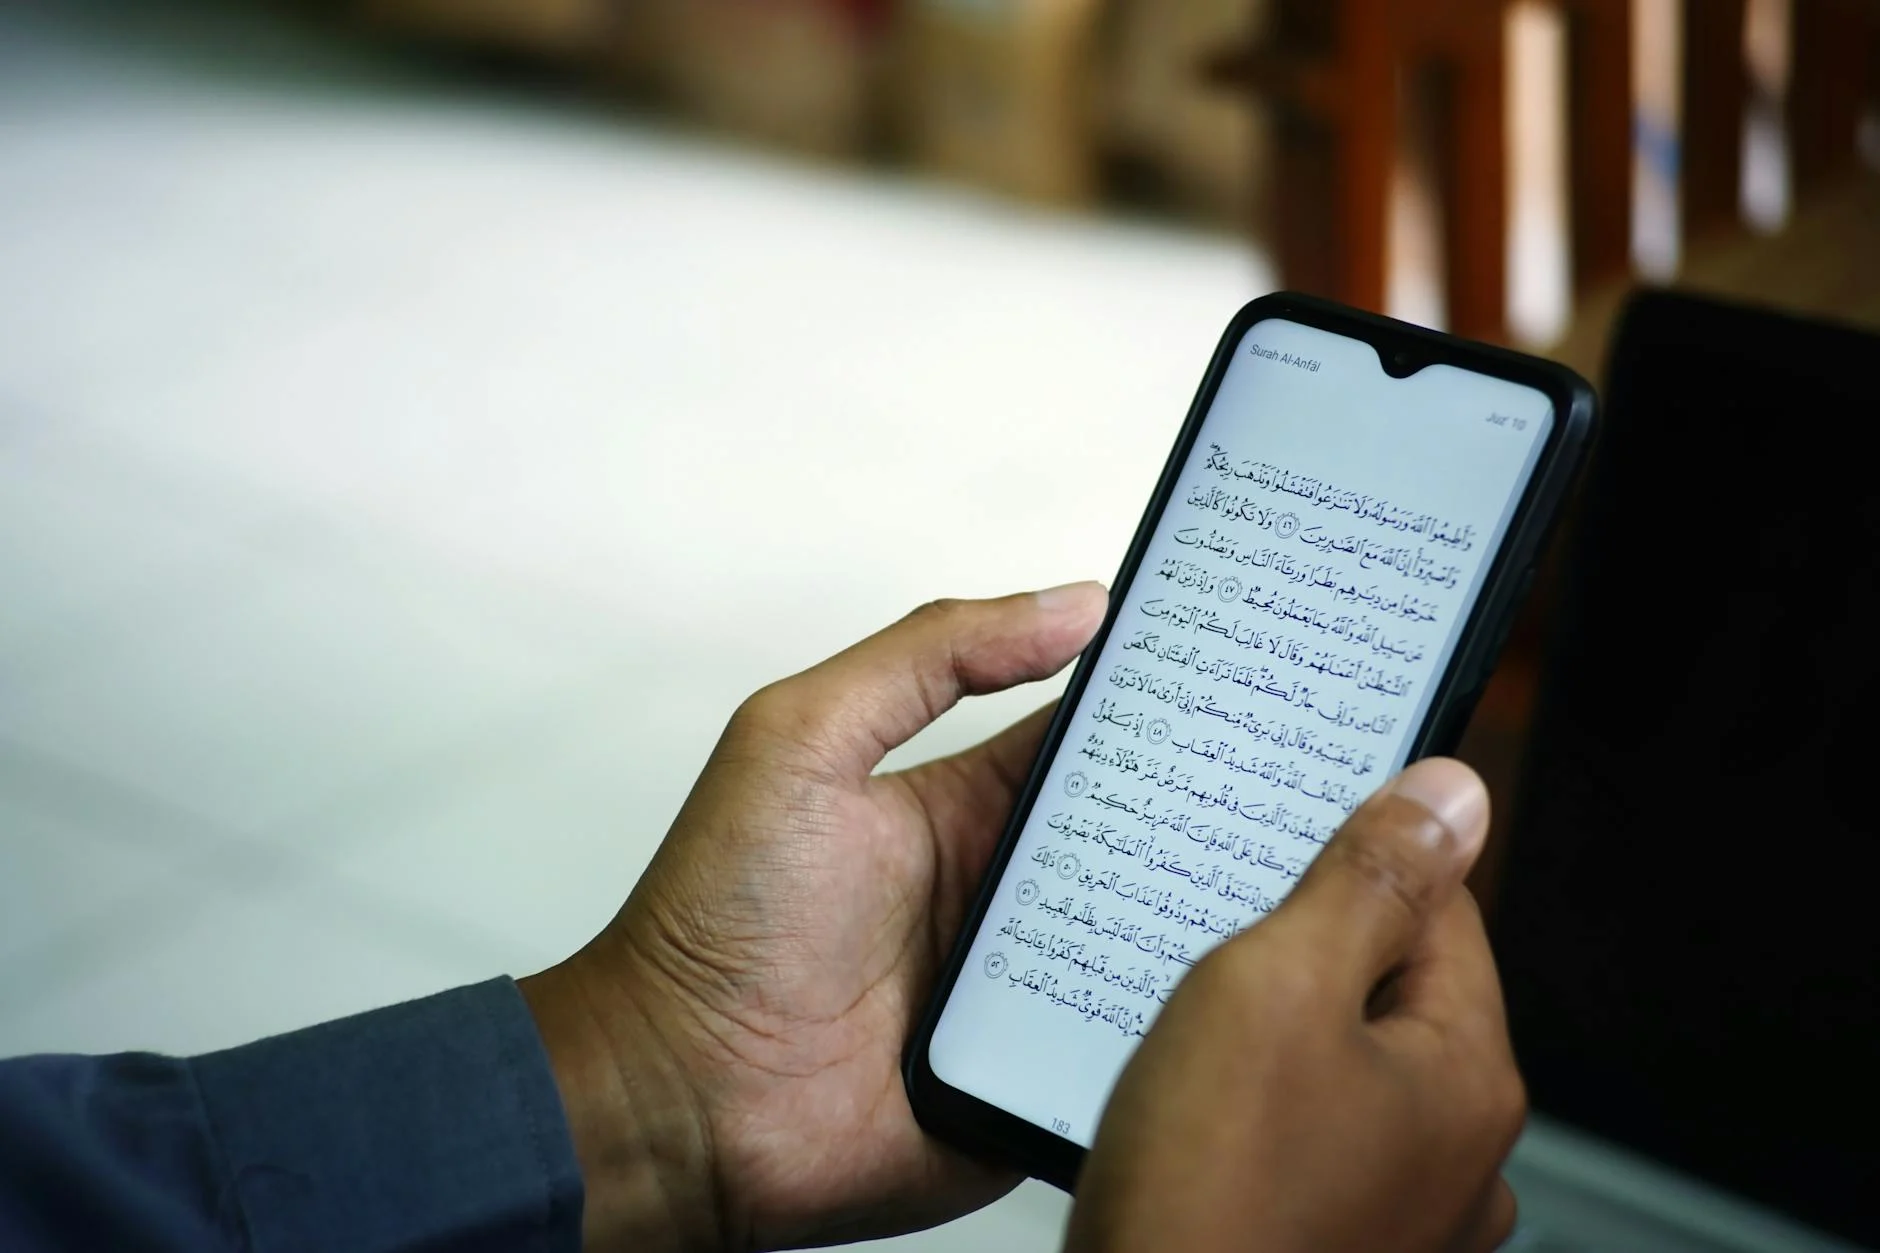 Surah Al-Anfâl
Juz' 10
وَأَطِيعُوا۟ ٱللَّهَ وَرَسُولَهُۥ وَلَا تَنَـٰزَعُوا۟ فَتَفْشَلُوا۟ وَتَذْهَبَ رِيحُكُمْ ۖ
وَٱصْبِرُوٓا۟ ۚ إِنَّ ٱللَّهَ مَعَ ٱلصَّـٰبِرِينَ ٤٦ وَلَا تَكُونُوا۟ كَٱلَّذِينَ
خَرَجُوا۟ مِن دِيَـٰرِهِم بَطَرًا وَرِئَآءَ ٱلنَّاسِ وَيَصُدُّونَ
عَن سَبِيلِ ٱللَّهِ ۚ وَٱللَّهُ بِمَا يَعْمَلُونَ مُحِيطٌ ٤٧ وَإِذْ زَيَّنَ لَهُمُ
ٱلشَّيْطَـٰنُ أَعْمَـٰلَهُمْ وَقَالَ لَا غَالِبَ لَكُمُ ٱلْيَوْمَ مِنَ
ٱلنَّاسِ وَإِنِّى جَارٌ لَّكُمْ ۖ فَلَمَّا تَرَآءَتِ ٱلْفِئَتَانِ نَكَصَ
عَلَىٰ عَقِبَيْهِ وَقَالَ إِنِّى بَرِىٓءٌ مِّنكُمْ إِنِّىٓ أَرَىٰ مَا لَا تَرَوْنَ
إِنِّىٓ أَخَافُ ٱللَّهَ ۚ وَٱللَّهُ شَدِيدُ ٱلْعِقَابِ ٤٨ إِذْ يَقُولُ
وَٱلَّذِينَ فِى قُلُوبِهِم مَّرَضٌ غَرَّ هَـٰٓؤُلَآءِ دِينُهُمْ ۗ
عَلَى ٱللَّهِ فَإِنَّ ٱللَّهَ عَزِيزٌ حَكِيمٌ ٤٩
إِذْ يَتَوَفَّى ٱلَّذِينَ كَفَرُوا۟ ۙ ٱلْمَلَـٰٓئِكَةُ يَضْرِبُونَ
وَأَدْبَـٰرَهُمْ وَذُوقُوا۟ عَذَابَ ٱلْحَرِيقِ ٥٠ ذَٰلِكَ
وَأَنَّ ٱللَّهَ لَيْسَ بِظَلَّـٰمٍ لِّلْعَبِيدِ ٥١
وَٱلَّذِينَ مِن قَبْلِهِمْ ۚ كَفَرُوا۟ بِـَٔايَـٰتِ ٱللَّهِ
إِنَّ ٱللَّهَ قَوِىٌّ شَدِيدُ ٱلْعِقَابِ ٥٢
183